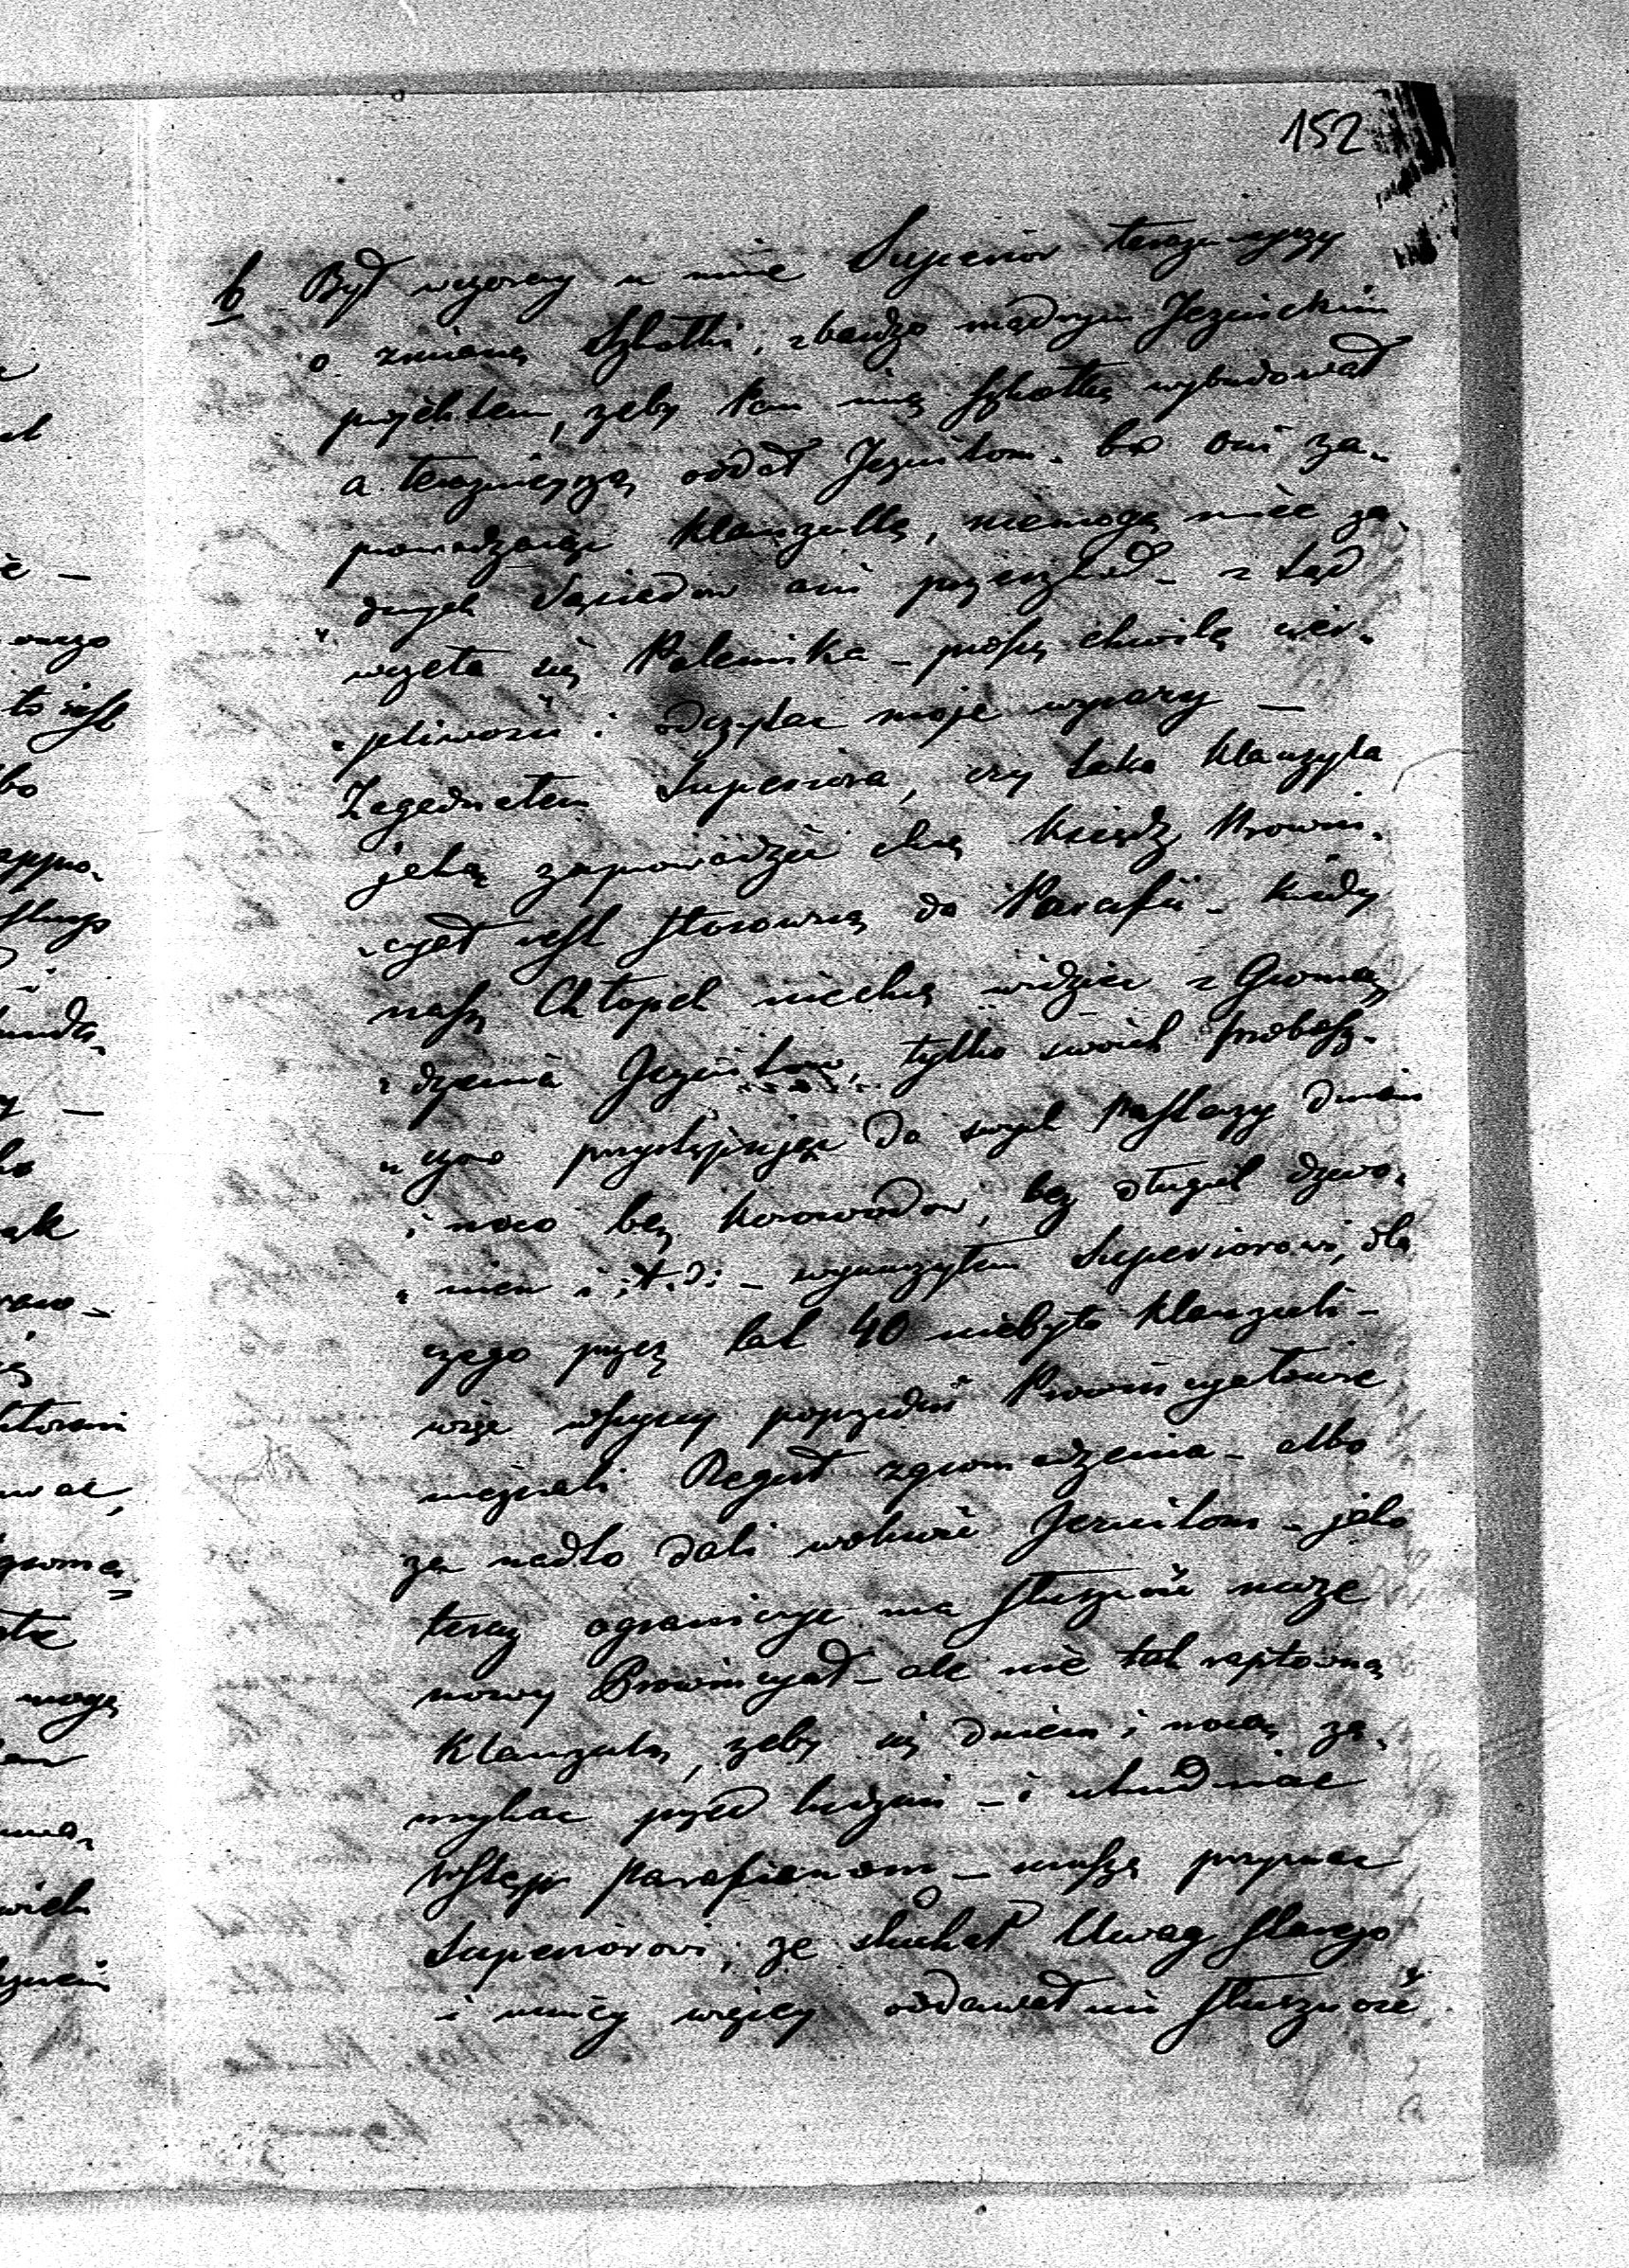 152
6 Był wczoray u mnie Superior teraznieyszy
o zmianę Szkołki, z bardzo mądrym Jezuickim
projektem, zeby Pan inną Szkołkę wybudował
a terazniejszą oddał Jezuitom. bo oni za„
prowadzając Klauzullę, niemogą mieć ża„
dnych Sąsiedów ani przeszkod – z tąd
wczęła się Polemika – proszę chwilę cier„
„pliwości i odczytac moje wyrazy —
Zagadnełem Superiora, czy taka Klauzula
jaką zaprowadzić chcą Ksiądz Prowin„
„cyał jest stosowną do Parafii – kiedy
nasz Chłopek niechcą widziec z Groma„
„dzenia Jezuitow, tylko swoich probosz„
„czow przystępując do swych Pasterzy dniem
i noco bez korowodow, bez długich dzwo„
„nien i .t.d: – wynurzyłem Superiorowi, dla
czego przez lat 40 niebyło Klauzuli –
więc wszyscy poprzedni Prowincyałowie
nieznali Reguł zgromadzenia – albo
za nadto dali wolność Jezuitom – jako
teraz ogranicza ma słuszność może
nowy Prowincyał – ale nie tak raptowną
Klauzulą, zeby się dniem i nocą za„
mykac przed ludzmi – i utrudniac
wstępu Parafianom – muszę przyznac
Superiorowi, ze słuchał Uwag starego
i mniey więcey oddawał mi słuszność